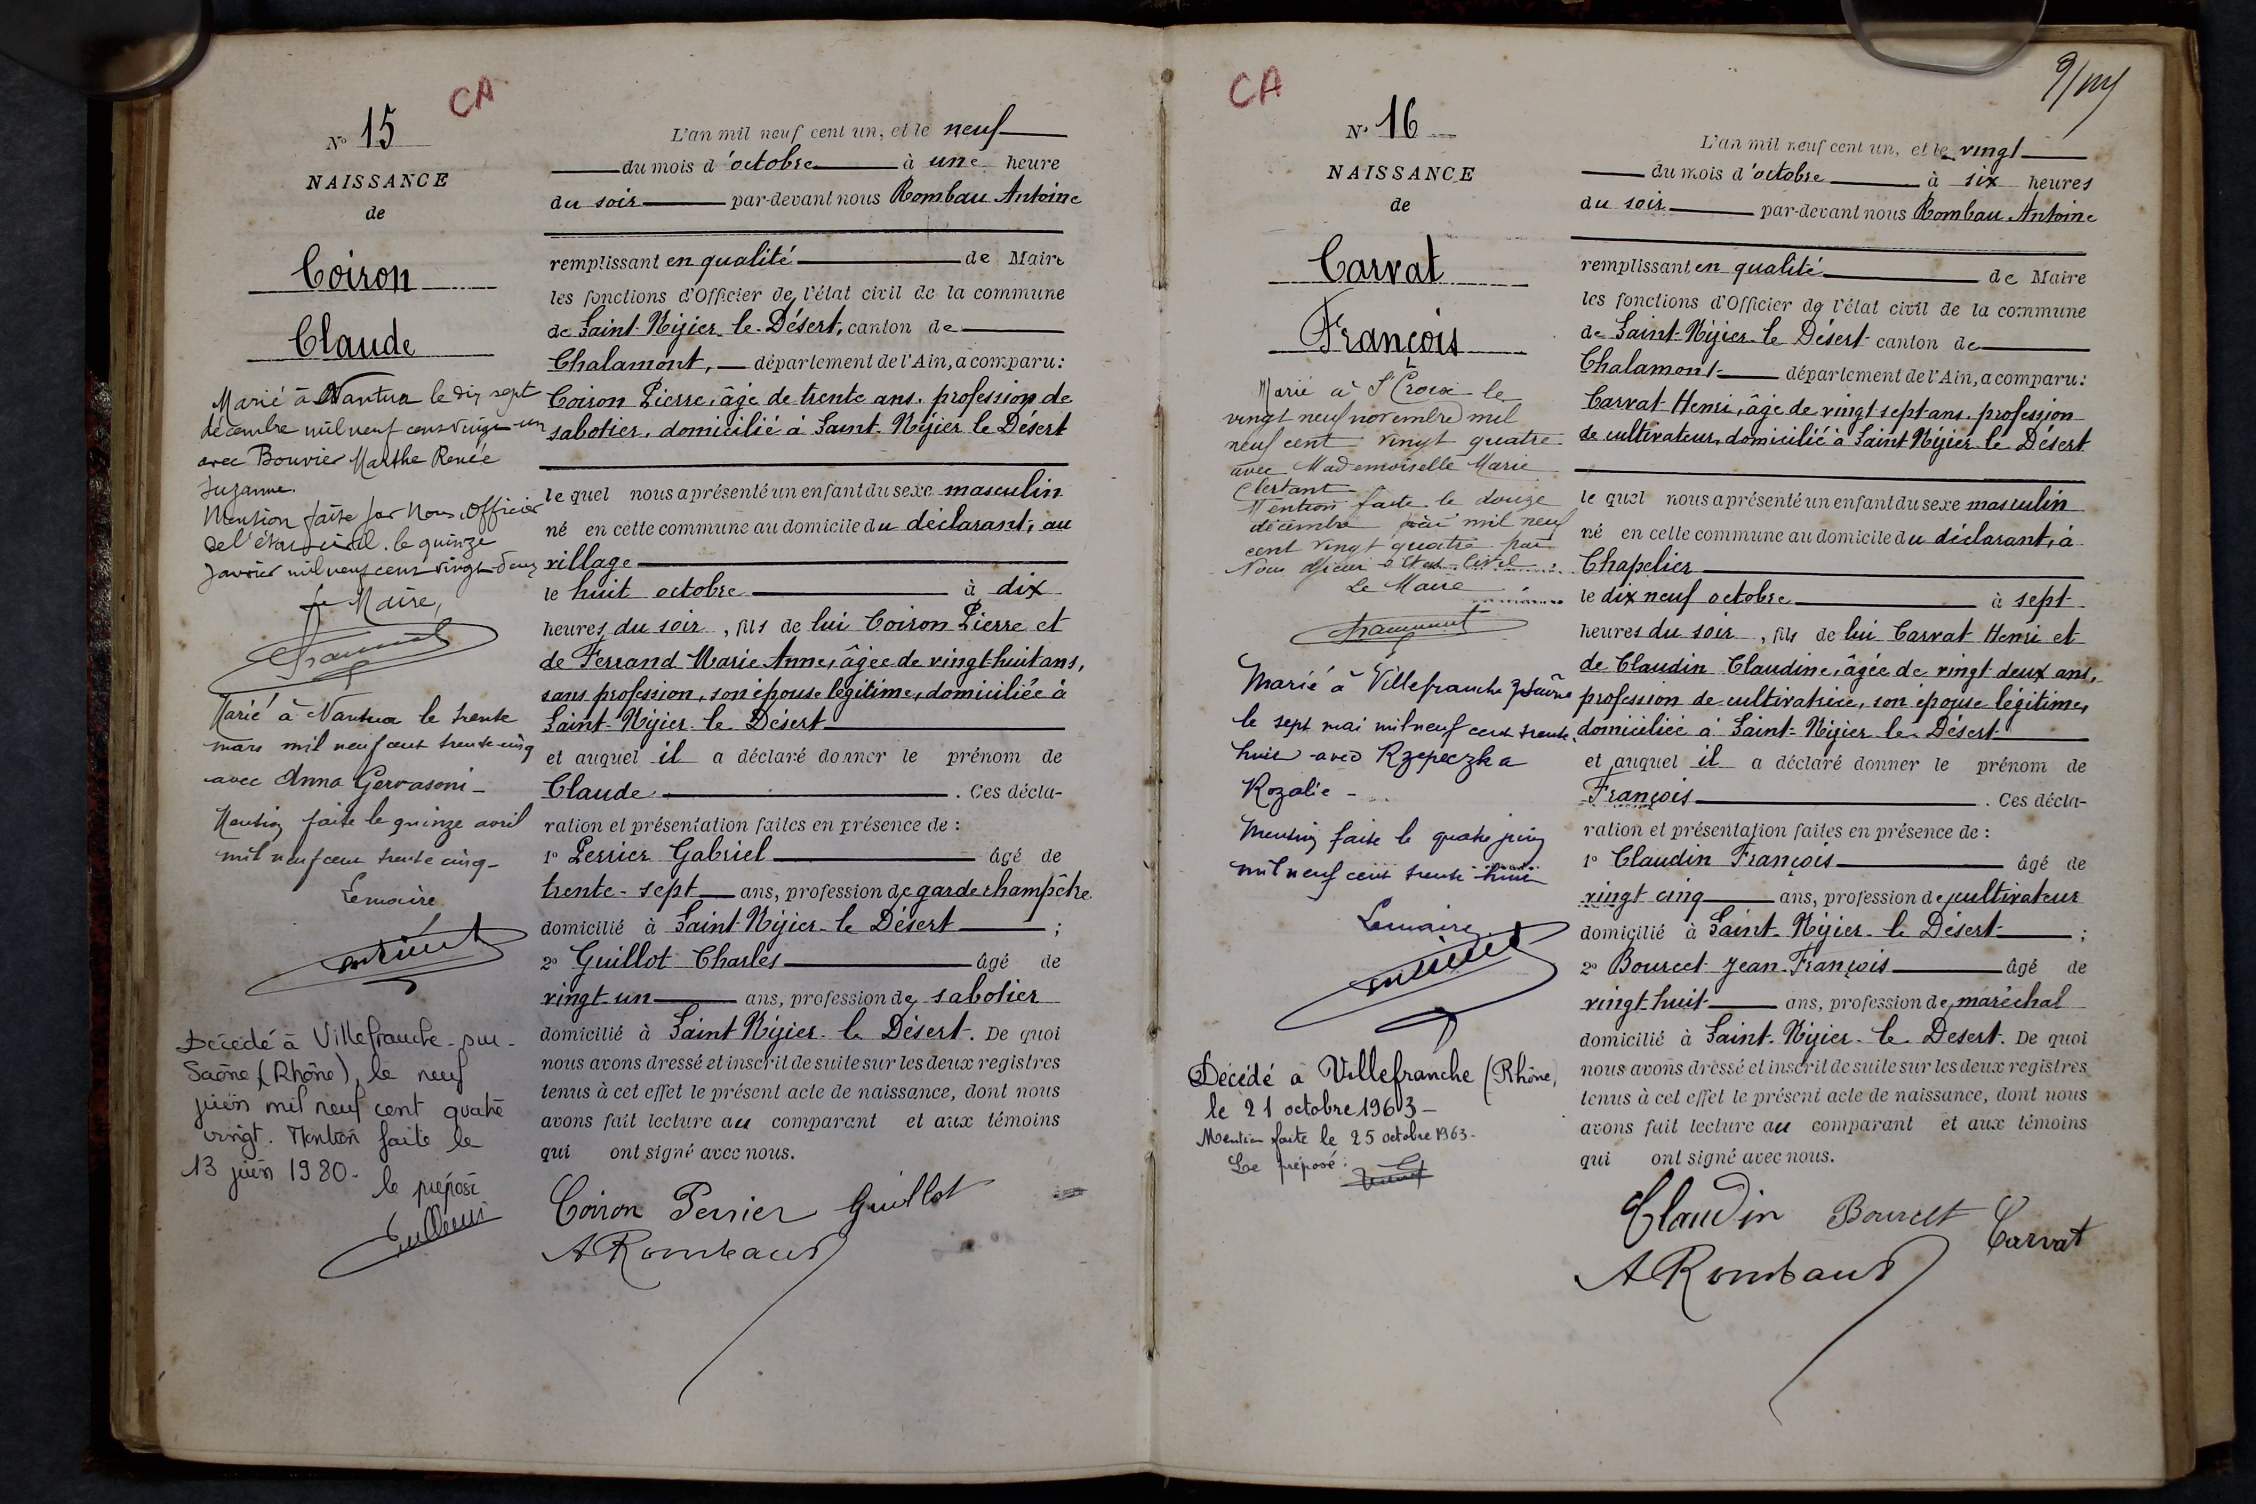 CA
N° 15
NAISSANCE
de
Coiron
Claude
Marié à Nantua le dix sept
décembre mil neuf cent vingt un
avec Bouvier Marthe Renée
Suzanne.
Mention faite par Nous, Officier
de l'état civil, le quinze
Janvier mil neuf cent vingt-deux
le Maire,
Marié à Nantua le trente
mars mil neuf cent trente cinq
avec Anna Gervasoni -
Mention faite le quinze avril
mil neuf cent trente cinq -
Lemaire
Décédé à Villefranche-sur-
Saône (Rhône), le neuf
juin mil neuf cent quatre
vingt. Mention faite le
13 juin 1980.
le préposé
L'an mil neuf cent un, et le neuf
du mois d'octobre à une heure
du soir par-devant nous Rombau Antoine
remplissant en qualité de Maire
les fonctions d'Officier de l'état civil de la commune
de Saint-Nizier-le-Désert, canton de
Chalamont, département de l'Ain, a comparu:
Coiron Pierre, âgé de trente ans, profession de
sabotier, domicilié à Saint-Nizier le Désert
le quel nous a présenté un enfant du sexe masculin
né en cette commune au domicile du déclarant, au
village
le huit octobre à dix
heures du soir, fils de lui Coiron Pierre et
de Ferrand Marie Anne, âgée de vingt-huit ans,
sans profession, son épouse légitime, domiciliée à
Saint-Nizier-le Désert
et auquel il a déclaré donner le prénom de
Claude. Ces décla-
ration et présentation faites en présence de :
1° Perrier Gabriel âgé de
trente-sept ans, profession de garde champêtre
domicilié à Saint-Nizier-le Désert ;
2° Guillot Charles âgé de
vingt-un ans, profession de sabotier
domicilié à Saint Nizier-le Désert. De quoi
nous avons dressé et inscrit de suite sur les deux registres
tenus à cet effet le présent acte de naissance, dont nous
avons fait lecture au comparant et aux témoins
qui ont signé avec nous.
Coiron Perrier Guillot
A Rombaud
CA
9/
N° 16
NAISSANCE
de
Carvat
François
Marié à St Croix le
vingt neuf novembre mil
neuf cent vingt quatre
avec Mademoiselle Marie
Clertant
Mention faite le douze
décembre mil neuf
cent vingt quatre par
Nous officier d'Etat-Civil
Le Maire
Marié à Villefranche s/Saône
le sept mai mil neuf cent trente-
huit avec Rzepeczka
Rozalie -
Mention faite le quatre juin
mil neuf cent trente huit
Lemaire
Décédé à Villefranche (Rhône)
le 21 octobre 1963 -
Mention faite le 25 octobre 1963.
Le préposé :
L'an mil neuf cent un, et le vingt
du mois d'octobre à six heures
du soir par-devant nous Rombau Antoine
remplissant en qualité de Maire
les fonctions d'Officier de l'état civil de la commune
de Saint-Nizier-le Désert canton de
Chalamont département de l'Ain, a comparu:
Carvat Henri, âgé de vingt sept ans, profession
de cultivateur, domicilié à Saint Nizier le Désert
le quel nous a présenté un enfant du sexe masculin
né en cette commune au domicile du déclarant, à
Chapelier
le dix neuf octobre à sept
heures du soir, fils de lui Carvat Henri et
de Claudin Claudine, âgée de vingt deux ans,
profession de cultivatrice, son épouse légitime,
domiciliée à Saint-Nizier le Désert
et auquel il a déclaré donner le prénom de
François. Ces décla-
ration et présentation faites en présence de :
1° Claudin François âgé de
vingt cinq ans, profession de cultivateur
domicilié à Saint-Nizier-le Désert ;
2° Bourcet Jean-François âgé de
vingt huit ans, profession de maréchal
domicilié à Saint-Nizier-le Désert. De quoi
nous avons dressé et inscrit de suite sur les deux registres
tenus à cet effet le présent acte de naissance, dont nous
avons fait lecture au comparant et aux témoins
qui ont signé avec nous.
Claudin Bourcet Carvat
A Rombaud